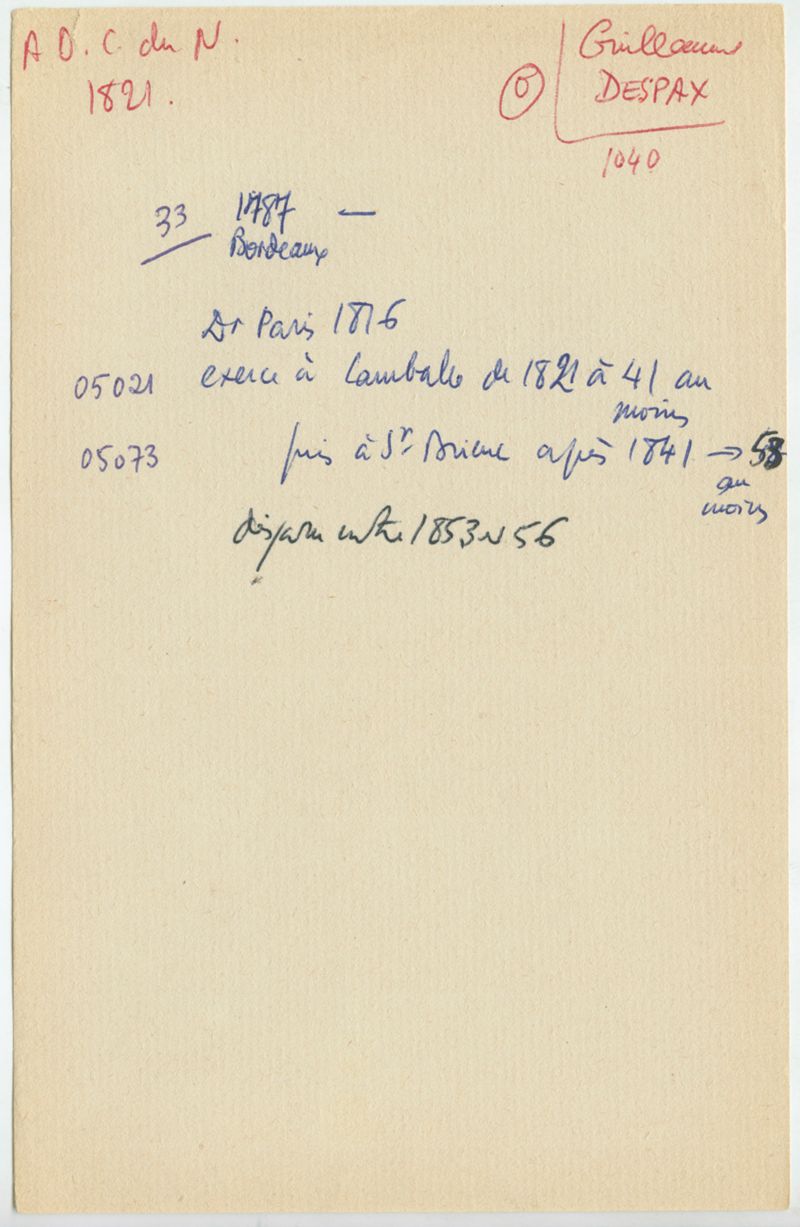 A D. C. du N.
1821.
Guillaume
DESPAX
1040
33 1787 —
Bordeaux
Dr Paris 1816
05021 exerce à Lamballe de 1821 à 41 au
moins
05073 puis à St Brieuc après 1841 → 58
au
moins
disparu entre 1853 et 56